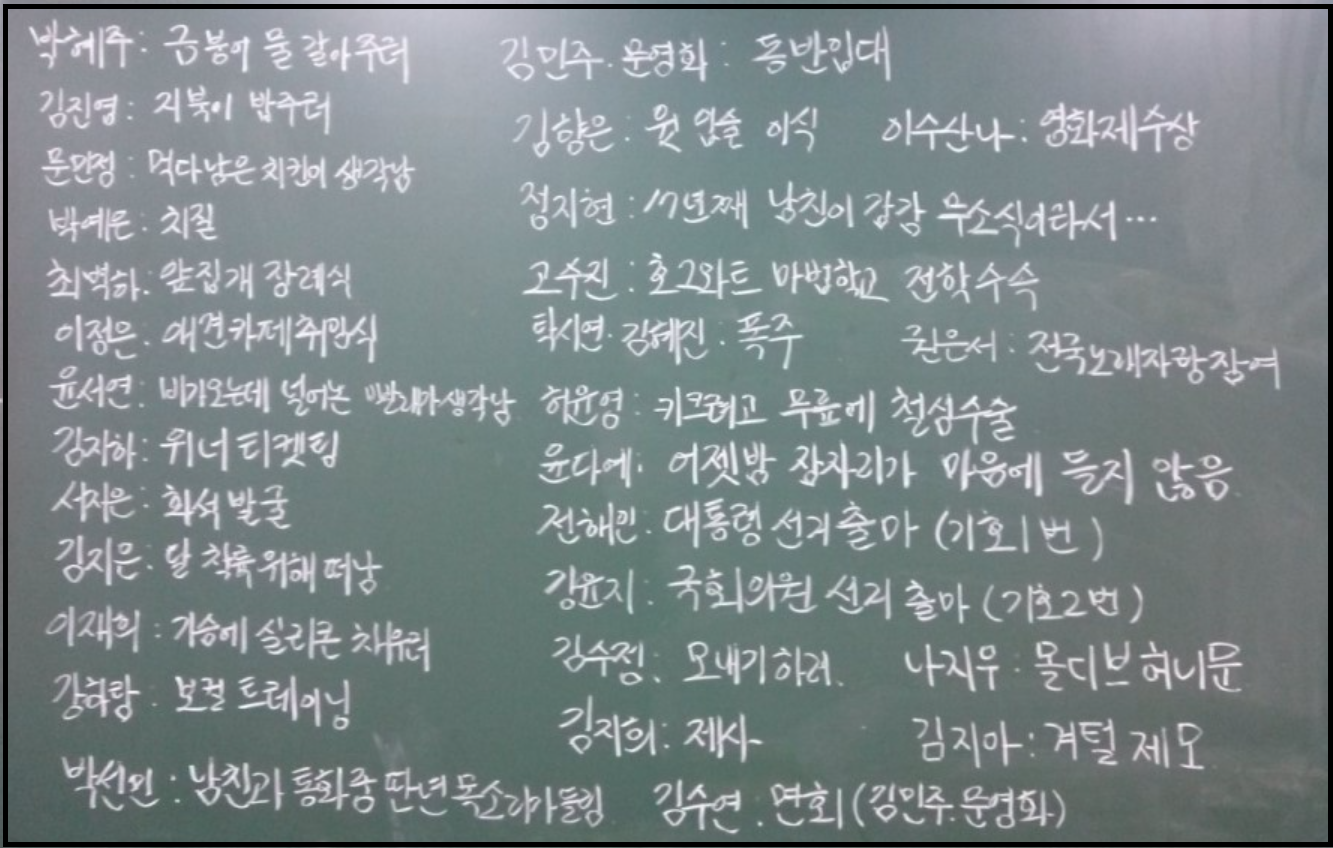 박혜주: 금붕어 물 갈아주러
김진영: 거북이 밥주러
문민정: 먹다남은 치킨이 생각남
박예은: 치질
최벽하: 앞집개 장례식
이정은: 애견카페취임식
윤서연: 비가오는데 널어논 빨래가생각남
김자하: 위너티켓팅
서지은: 화석발굴
김지은: 달 착륙위해 떠남
이재희: 가슴에 실리콘 채우러
강하람: 보컬트레이닝
박선민: 남친과 통화중 딴년목소리가들림
김민주.문영화: 동반입대
김향은: 윗입술 이식 이수산나: 영화제수상
정지현: 17년째 남친이 감감 무소식이라서…
고수진: 호그와트 마법학교 전학수속
탁시연.김혜진: 폭주 권은서: 전국노래자랑참여
허윤영: 키크려고 무릎에 철심수술
윤다예: 어젯밤 잠자리가 마음에 들지 않음
전해인: 대통령선거출마 (기호1번)
강윤지: 국회의원 선거 출마 (기호2번)
김수정: 모내기하러 나지우: 몰디브허니문
김지희: 제사 김지아: 겨털제모
김수연: 면회 (김민주.문영화)